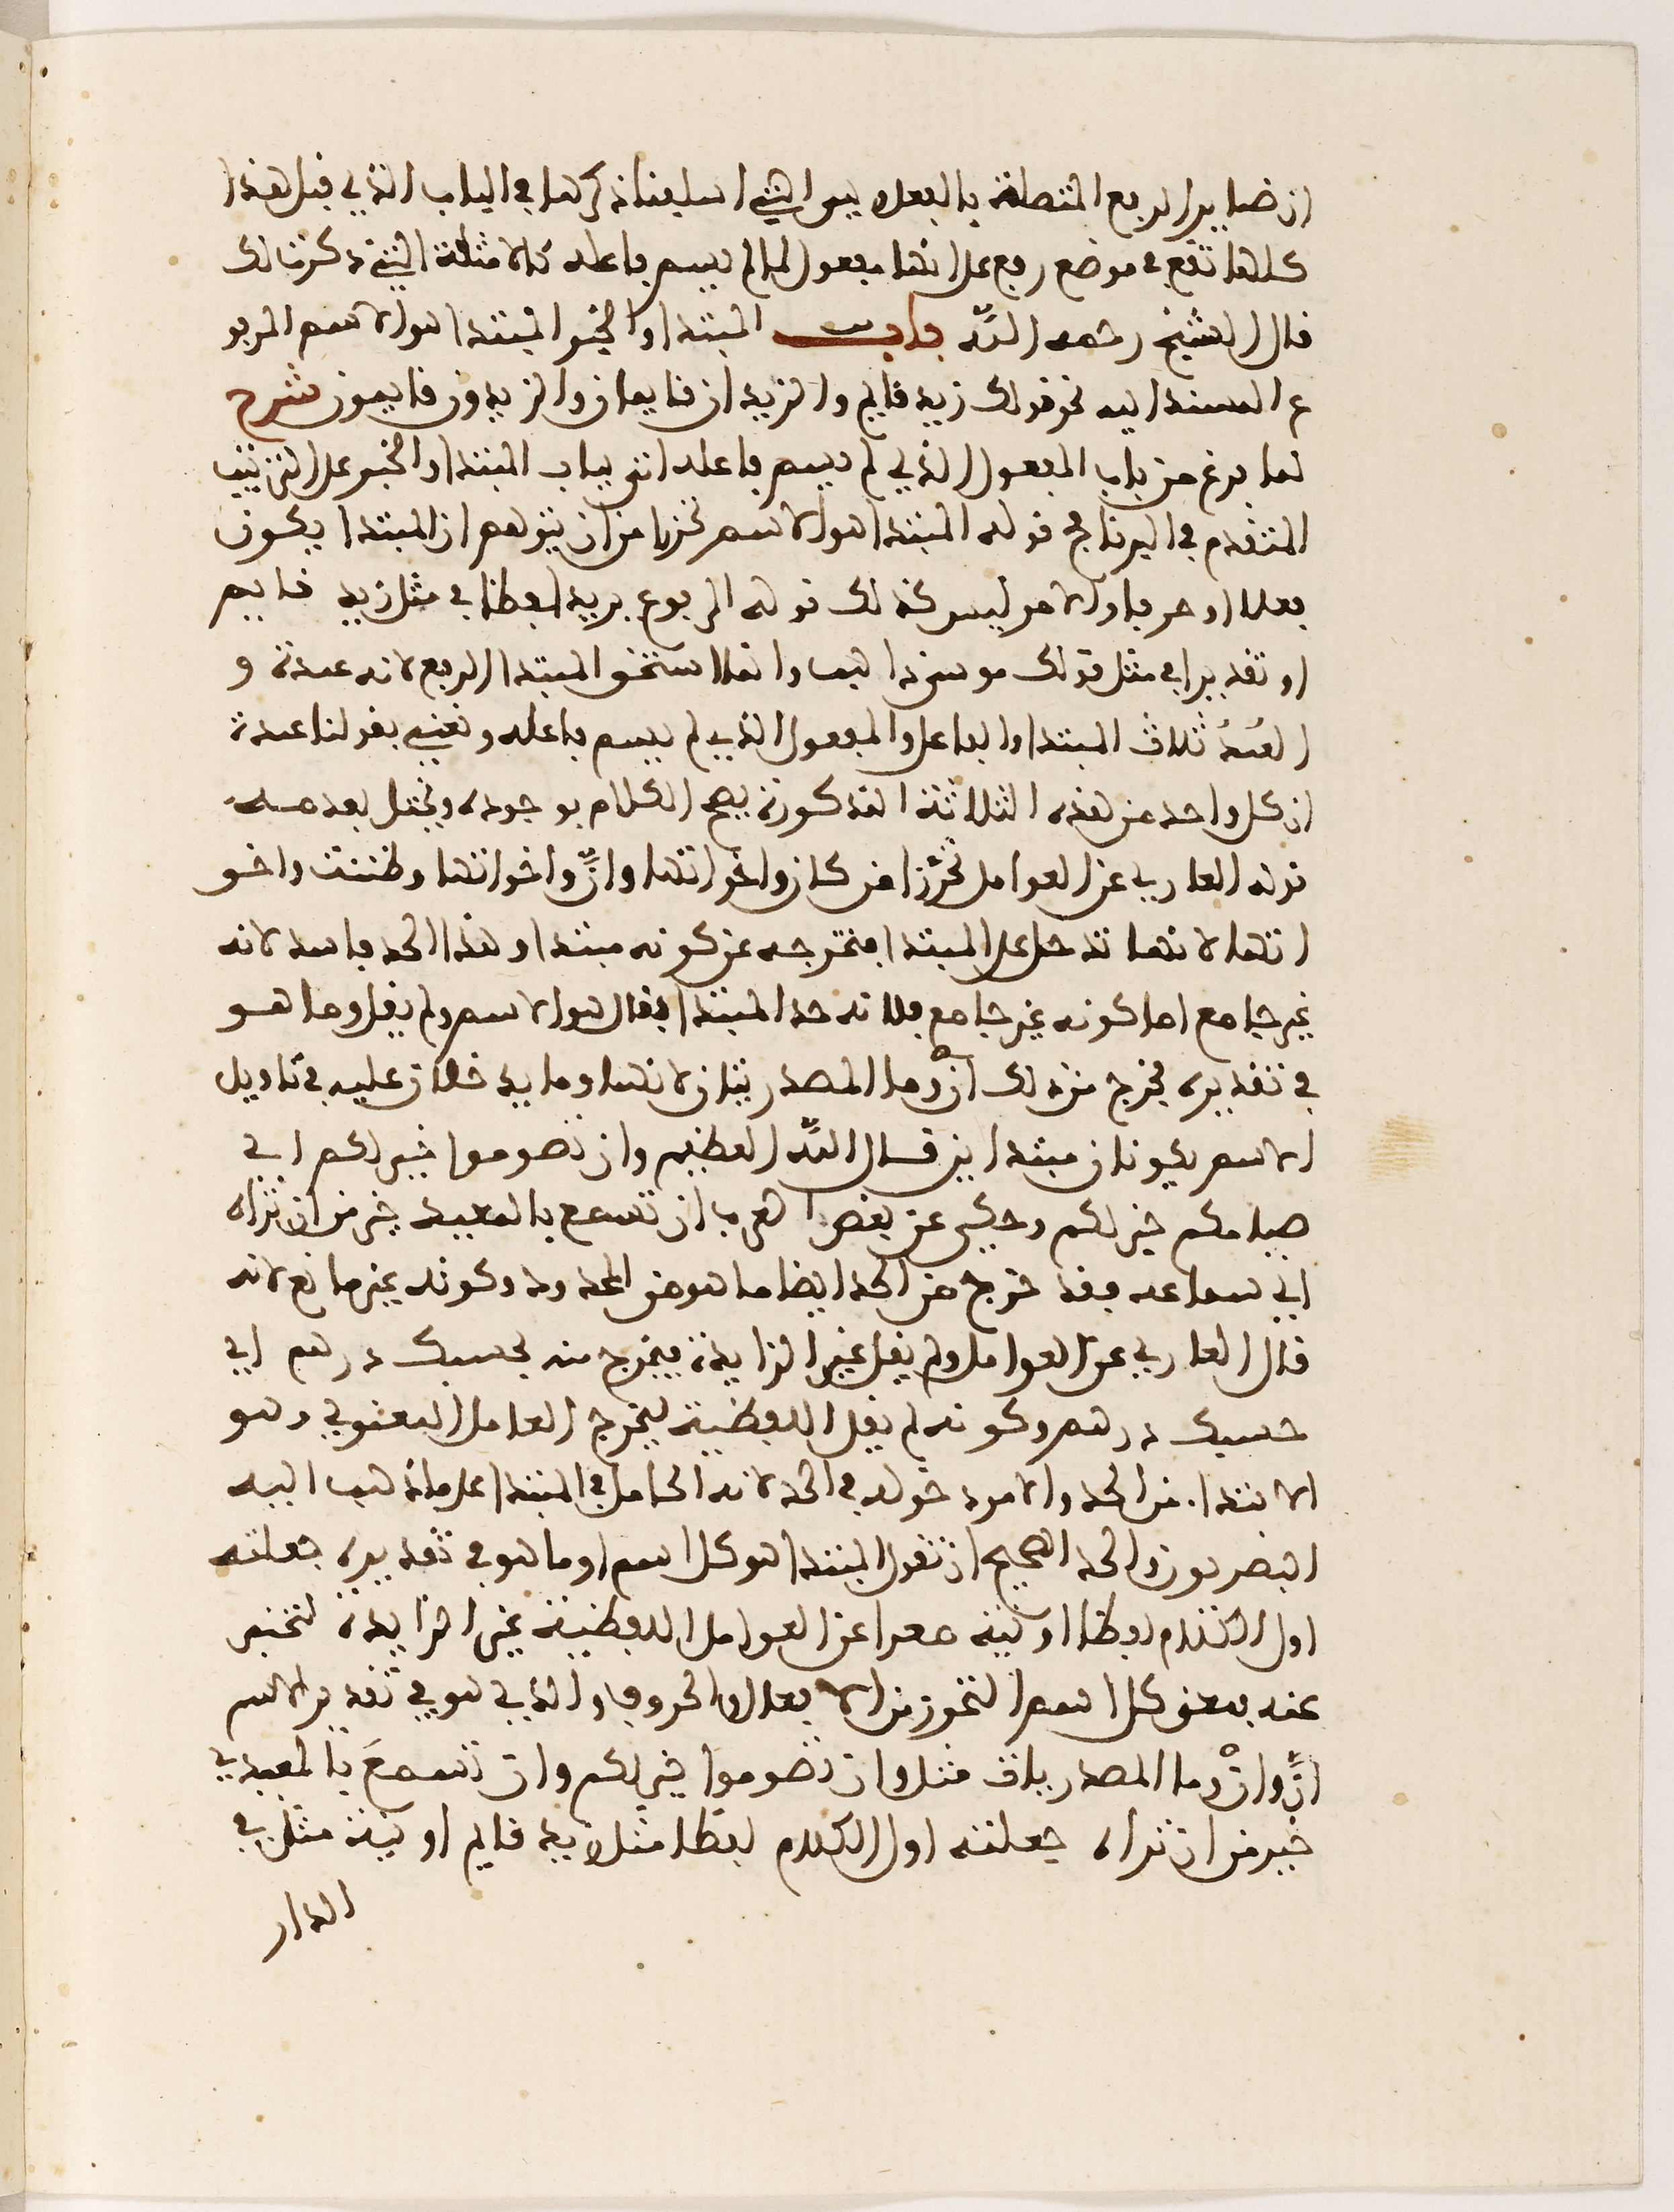 ان ضماير الرفع المتصلة بالفعل وهي التي اسلفنا ذكرها في الباب الذي قبل هذا
كلها تقع في موضع رفع على انها مفعول لما لم يسم فاعله كالامثلة التي ذكرنا لك
قال الشيخ رحمه الله باب المبتدا والخبر المبتدا هو الاسم المرفو
ع المسند اليه نحو قولك زيد قايم والزيدان قايمان والزيدون قايمون شرح
لما فرغ من باب المفعول الذي لم يسم فاعله اتى بباب المبتدا والخبر على الترتيب
المتقدم في البرنامج قوله المبتدا هو الاسم تحرزا من ان يتوهم ان المبتدا يكون
فعلا او حرفا والامر ليس كذلك قوله المرفوع يريد لفظا في مثل زيد قايم
او تقديرا في مثل قولك موسى ذاهب وانما استحق المبتدا الرفع لانه عمدة و
العُمدُ ثلاث المبتدا والفاعل والمفعول الذي لم يسم فاعله ونعني بقولنا عمدة
ان كل واحد من هذه الثلاثة المذكورة يصح الكلام بوجوده ويختل بعدمه
قوله العاري عن العوامل تحرّزا من كان واخواتها وانّ واخواتها وظننت واخو
اتها لانها تدخل على المبتدا فتخرجه عن كونه مبتدا وهذا الحد فاسد لانه
غير جامع اما كونه غير جامع فلانه حد المبتدا فقال هو الاسم ولم يقل وما هو
في تقديره فخرج من ذلك انْ وما المصدريتان لانهما وما يدخلان عليه في تاويل
الاسم يكونان مبتداين قال اللّه العظيم وان تصوموا خير لكم اي
صيامكم خير لكم وحكي عن بعض العرب ان تسمع بالمعيدي خير من ان تراه
اي سماعه فقد خرج من الحد ايضا ما هو من المحدود وكونه غير مانع لانه
قال العاري عن العوامل ولم يقل غير الزايدة فيخرج منه بحسبك درهم اي
حسبك درهم وكونه لم يقل اللفظية ليخرج العامل المعنوي وهو
الابتدا. من الحد والامر دخوله في الحد لانه العامل في المبتدا على ما ذهب اليه
البصريون والحد الصحيح ان تقول المبتدا هو كل اسم او ما هو في تقديره جعلته
اول الكلام لفظا او نية معرا عن العوامل اللفظية غير الزايدة لتخبر
عنه فمعنى كل اسم التحرز من الافعال والحروف والذي هو في تقدير الاسم
انَّ وانْ وما المصدريات مثل وان تصوموا خير لكم وان تسمعَ بالمعيدي
خير من ان تراه جعلته اول الكلام لفظا مثل زيد قايم او نية مثل في
الدار